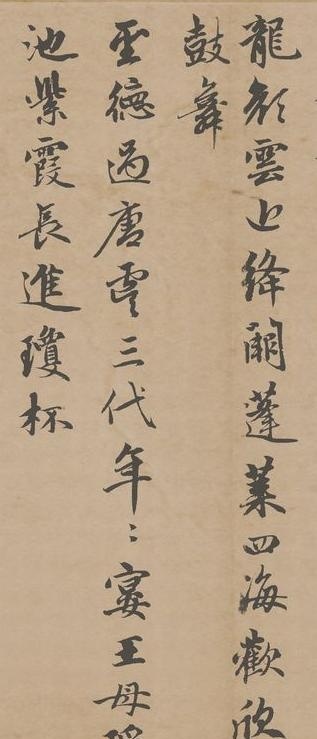 龍顔雲上絳闕蓬莱四海歡欣
鼓舞
聖德過唐虞三代年〻宴王母瑶
池紫霞長進瓊杯